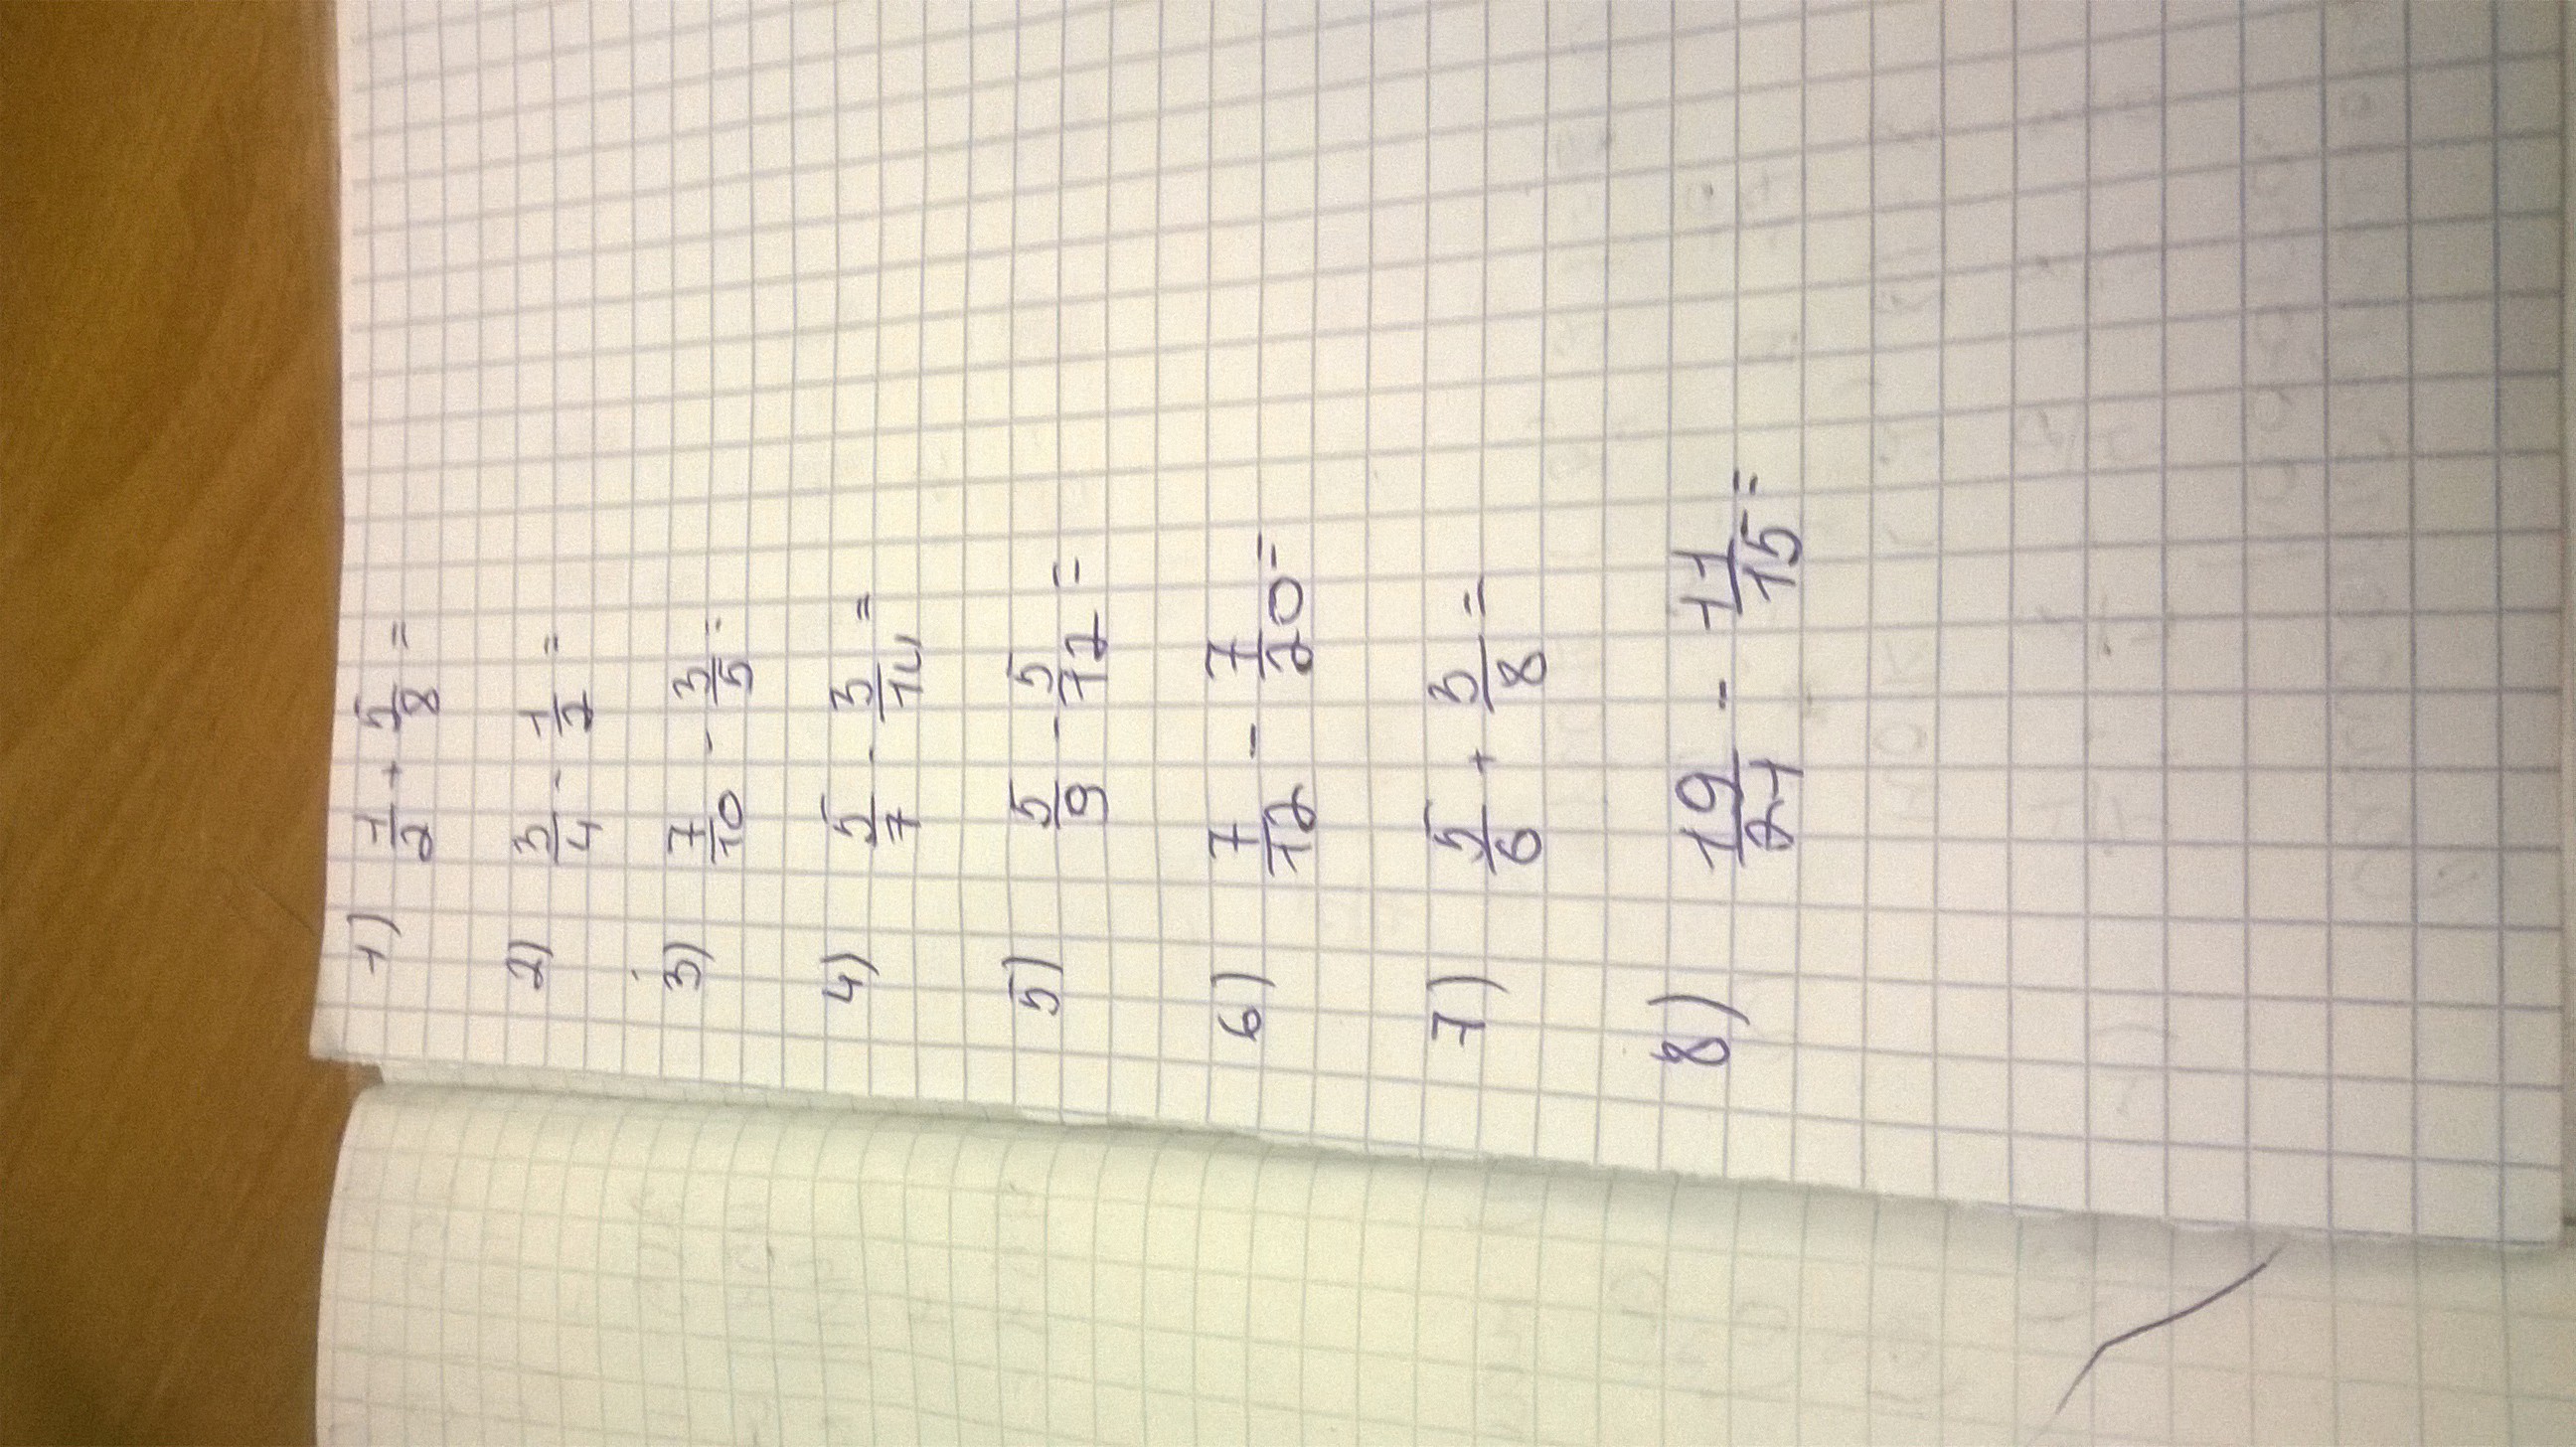 1) 1/2 + 5/8 =
2) 3/4 - 1/2 =
3) 7/10 - 3/5 =
4) 5/7 - 3/14 =
5) 5/9 - 5/12 =
6) 7/12 - 7/20 =
7) 5/6 + 3/8 =
8) 19/21 - 11/15 =